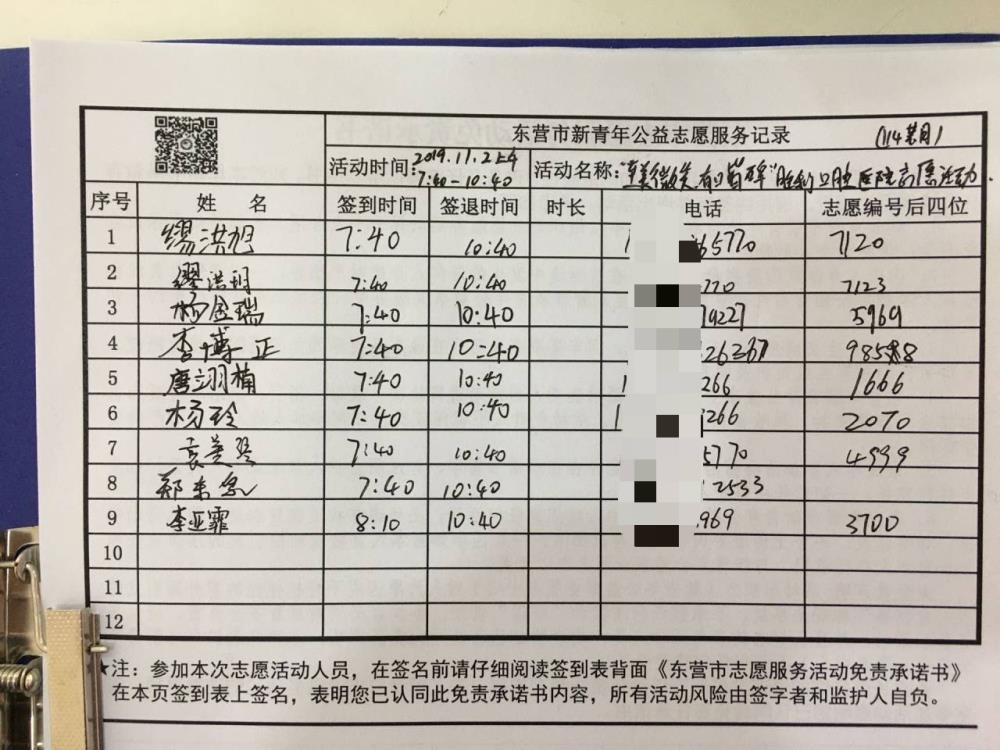 东营市新青年公益志愿服务记录
活动时间: 2019.11.2上午 7:40-10:40 活动名称: 微笑 口腔医院志愿活动
序号 姓名 签到时间 签退时间 时长 电话 志愿编号后四位
1 缪洪旭 7:40 10:40 1 65770 7120
2 缪洪玥 7:40 10:40 770 7123
3 杨金瑞 7:40 10:40 79227 5969
4 李博正 7:40 10:40 26267 98588
5 唐翊楠 7:40 10:40 1 266 1666
6 杨玲 7:40 10:40 1 266 2070
7 袁美琴 7:40 10:40 5770 4999
8 郑 7:40 10:40 2533
9 李亚霏 8:10 10:40 969 3700
10
11
12
★注: 参加本次志愿活动人员，在签名前请仔细阅读签到表背面《东营市志愿服务活动免责承诺书》
在本页签到表上签名，表明您已认同此免责承诺书内容，所有活动风险由签字者和监护人自负。